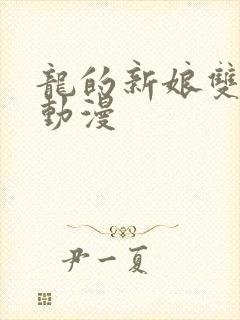 龍的新娘雙
動漫
尹一夏